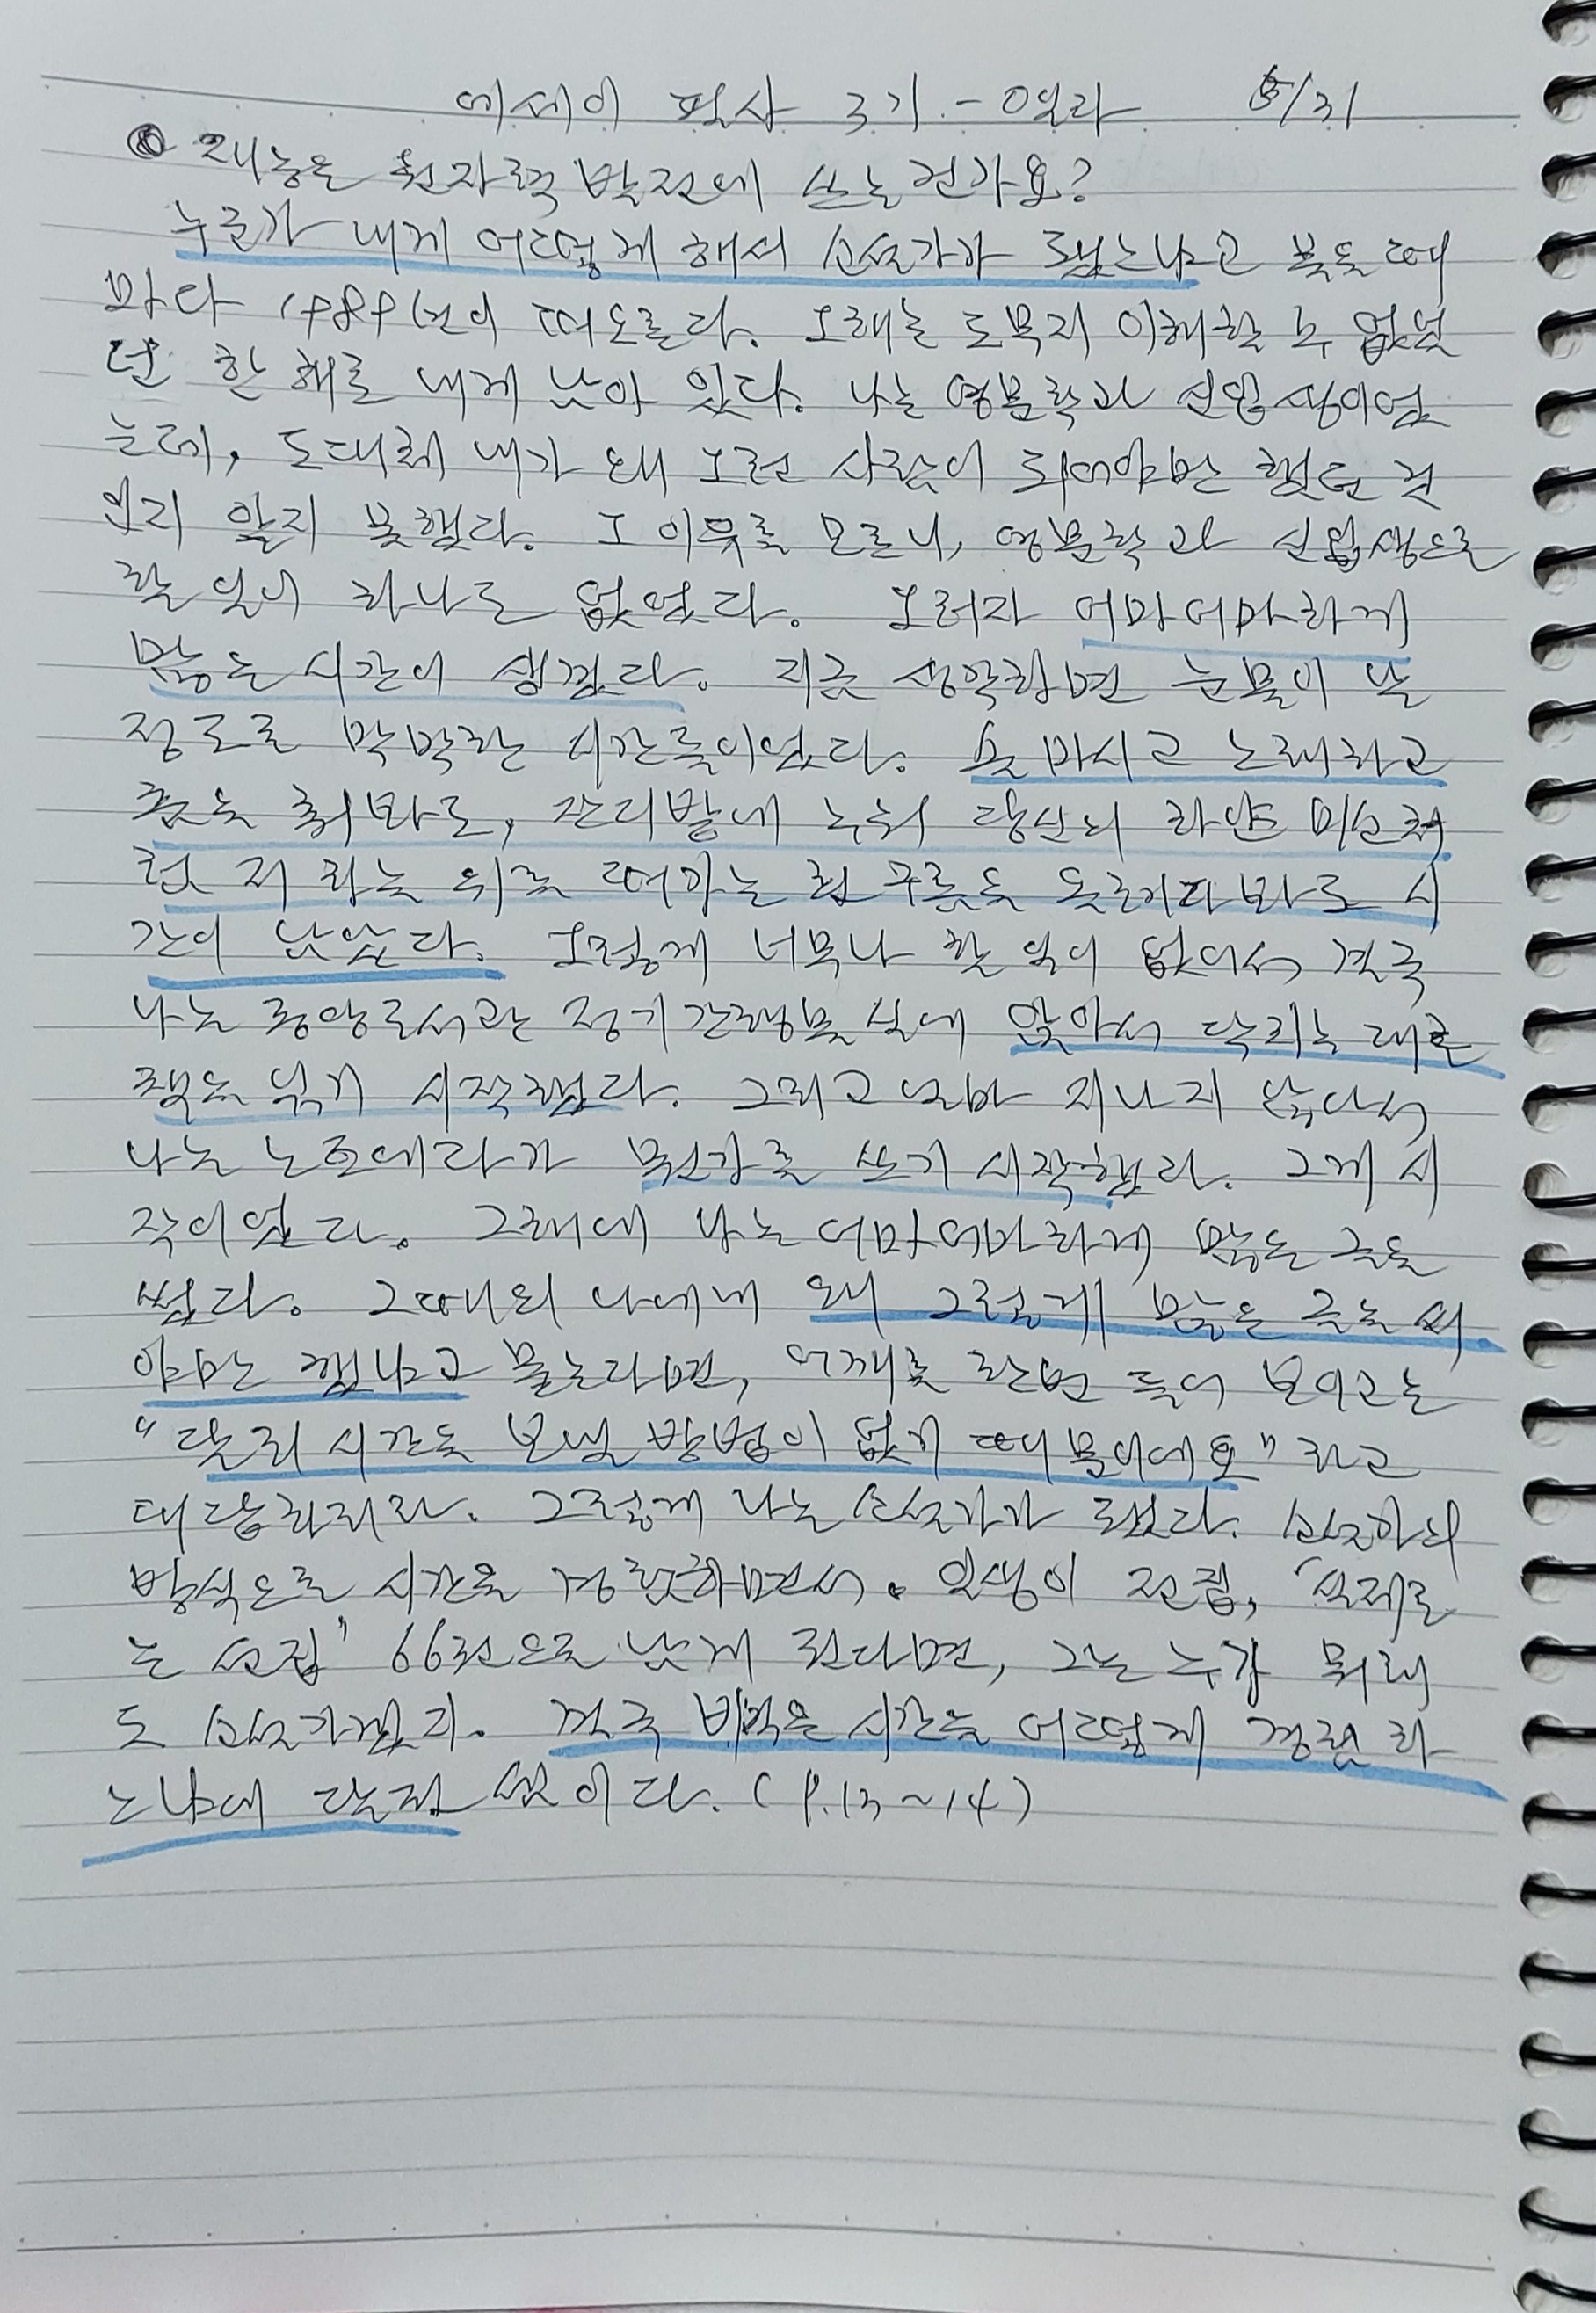 에세이 필사 3기 - 0일차 5/31
재능은 원자력 발전에 쓰는 건가요?
누군가 내게 어떻게 해서 소설가가 됐느냐고 물을 때
마다 1989년이 떠오른다. 그해는 도무지 이해할 수 없었
던 한 해로 내게 남아 있다. 나는 영문학과 신입생이었
는데, 도대체 내가 왜 그런 사람이 되어야만 했던 것
인지 알지 못했다. 그 이유를 모르니, 영문학과 신입생으로
할 일이 하나도 없었다. 그러자 어마어마하게
많은 시간이 생겼다. 지금 생각하면 눈물이 날
정도로 막막한 시간들이었다. 술 마시고 노래하고
춤을 춰봐도, 잔디밭에 누워 당신의 하얀 미소처
럼 저 하늘 위로 떠가는 흰 구름을 올려다봐도 시
간이 남았다. 그렇게 너무나 할 일이 없어서 결국
나는 중앙도서관 정기간행물실에 앉아서 닥치는 대로
책을 읽기 시작했다. 그리고 얼마 지나지 않아서
나는 노트에다가 뭔가를 쓰기 시작했다. 그게 시
작이었다. 그래에 나는 어마어마하게 많은 글을
썼다. 그때의 나에게 왜 그렇게 많은 글을 써
야만 했냐고 묻는다면, 어깨를 한번 들어 보이고는
"달리 시간을 보낼 방법이 없기 때문이에요"라고
대답하리라. 그렇게 나는 소설가가 됐다. 소설가의
방식으로 시간을 경험하면서. 인생이 전집, '실제로
는 선집' 66권으로 남게 된다면, 그는 누가 뭐래
도 소설가겠지. 결국 비밀은 시간을 어떻게 경험하
느냐에 달린 셈이다. (P.13~14)